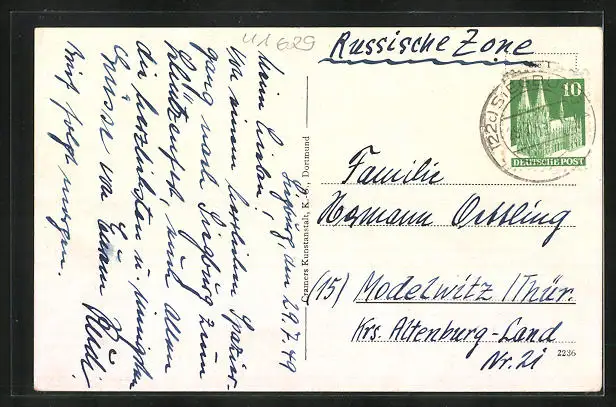 41629
Russische Zone
(22c) SIEGBURG
10
DEUTSCHE POST
Siegburg, den 29.7.49
Meine Lieben!
Von einem herrlichen Spazier-
gang nach Siegburg zum
Schützenfest, sendet allen
die herzlichsten u. innigsten
Grüsse von Eurem
Brief folgt morgen.
Cramers Kunstanstalt, K.-G., Dortmund
Familie
Hermann Oettling
(15) Modelwitz /Thür.
Krs. Altenburg-Land
Nr. 21
2236